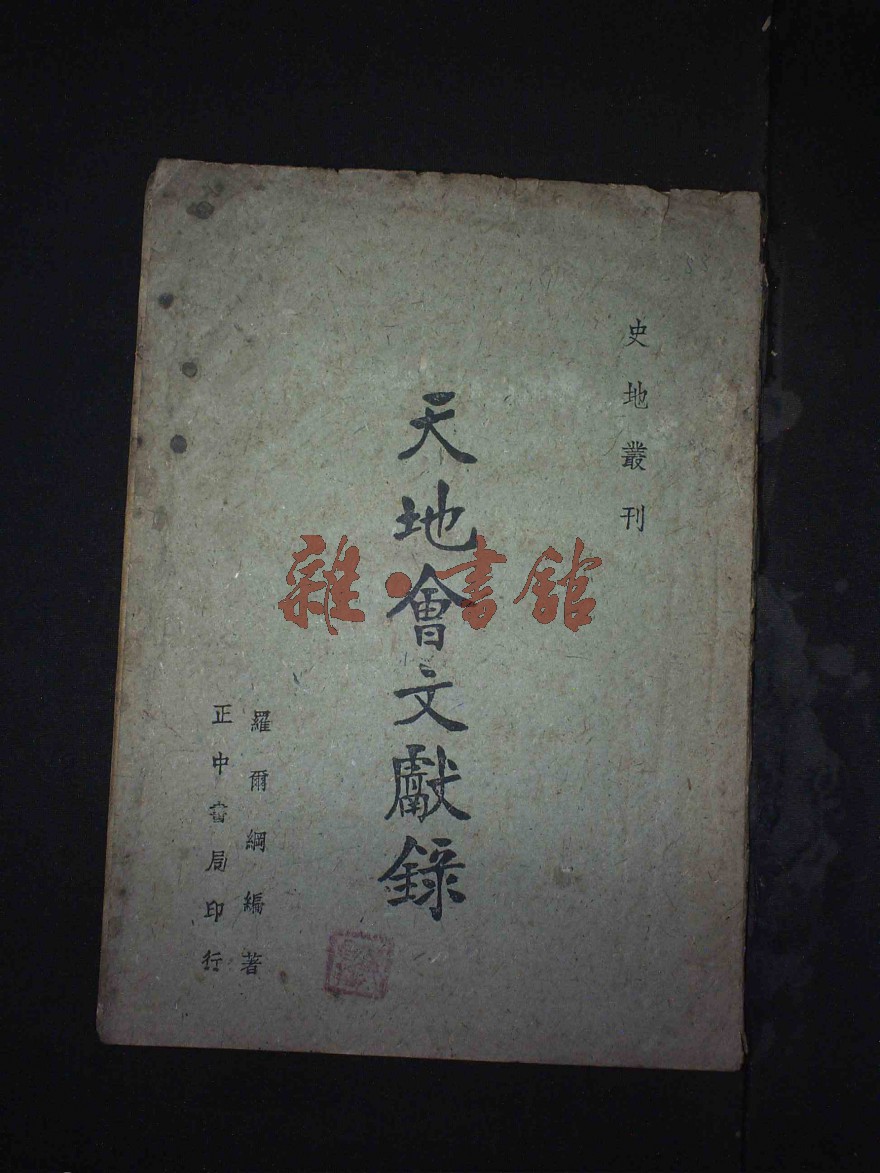 史地叢刊
天地會文獻錄
羅爾綱編著
正中書局印行
雜·書館